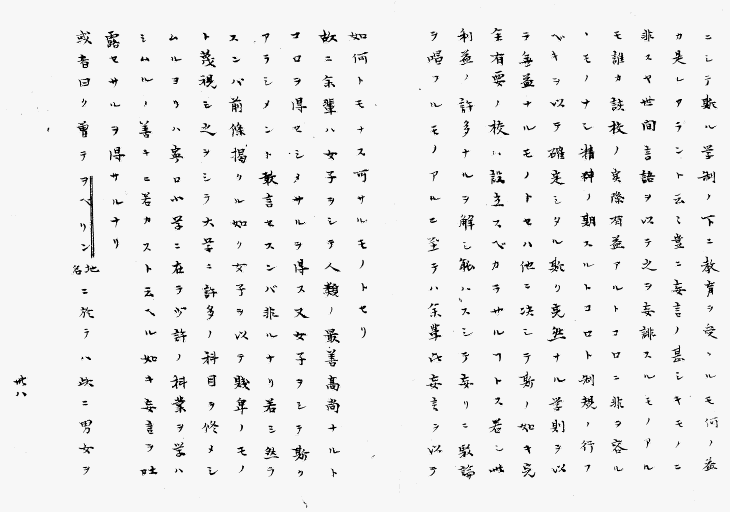 ニシテ斯ル学制ノ下ニ教育ヲ受ヽルモ何ノ益
カ是レアラント云ニ豈ニ妄言ノ甚シキモノニ
非スヤ世間言語ヲ以テ之ヲ妄誹スルモノアル
モ誰カ該校ノ実際有益アルトコロニ非ヲ容ル
ヽモノナシ精神ノ期スルトコロト制規ノ行フ
ベキヲ以テ確定シタル斯ク完然ナル学則ヲ以
テ無益ナルモノトセハ他ニ决シテ斯ノ如キ完
全有要ノ校ハ設立スベカラサルフトス若シ此
利益ノ許多ナルヲ解シ能ハスシテ妄リニ駁論
ヲ唱フルモノアルニ至テハ余輩此妄言ヲ以テ
如何トモナス可サルモノトセリ
故ニ余輩ハ女子ヲシテ人類ノ最善高尚ナルト
コロヲ得セシメサルヲ得ス又女子ヲシテ斯ク
アラシメント敢言セスンバ非ルナリ若シ然ラ
スンバ前條掲クル如ク女子ヲ以テ賤卑ノモノ
ト蔑視シ之ヲシテ大学ニ許多ノ科目ヲ修メシ
ムルヨリハ寧ロ小学ニ在ヲヅ許ノ科業ヲ学ハ
シムルノ善キニ若カスト云ヘル如キ妄言ヲ吐
露セサルヲ得サルナリ
或者曰ク曽テヲベリン地名ニ於テハ此ニ男女ヲ
卅八